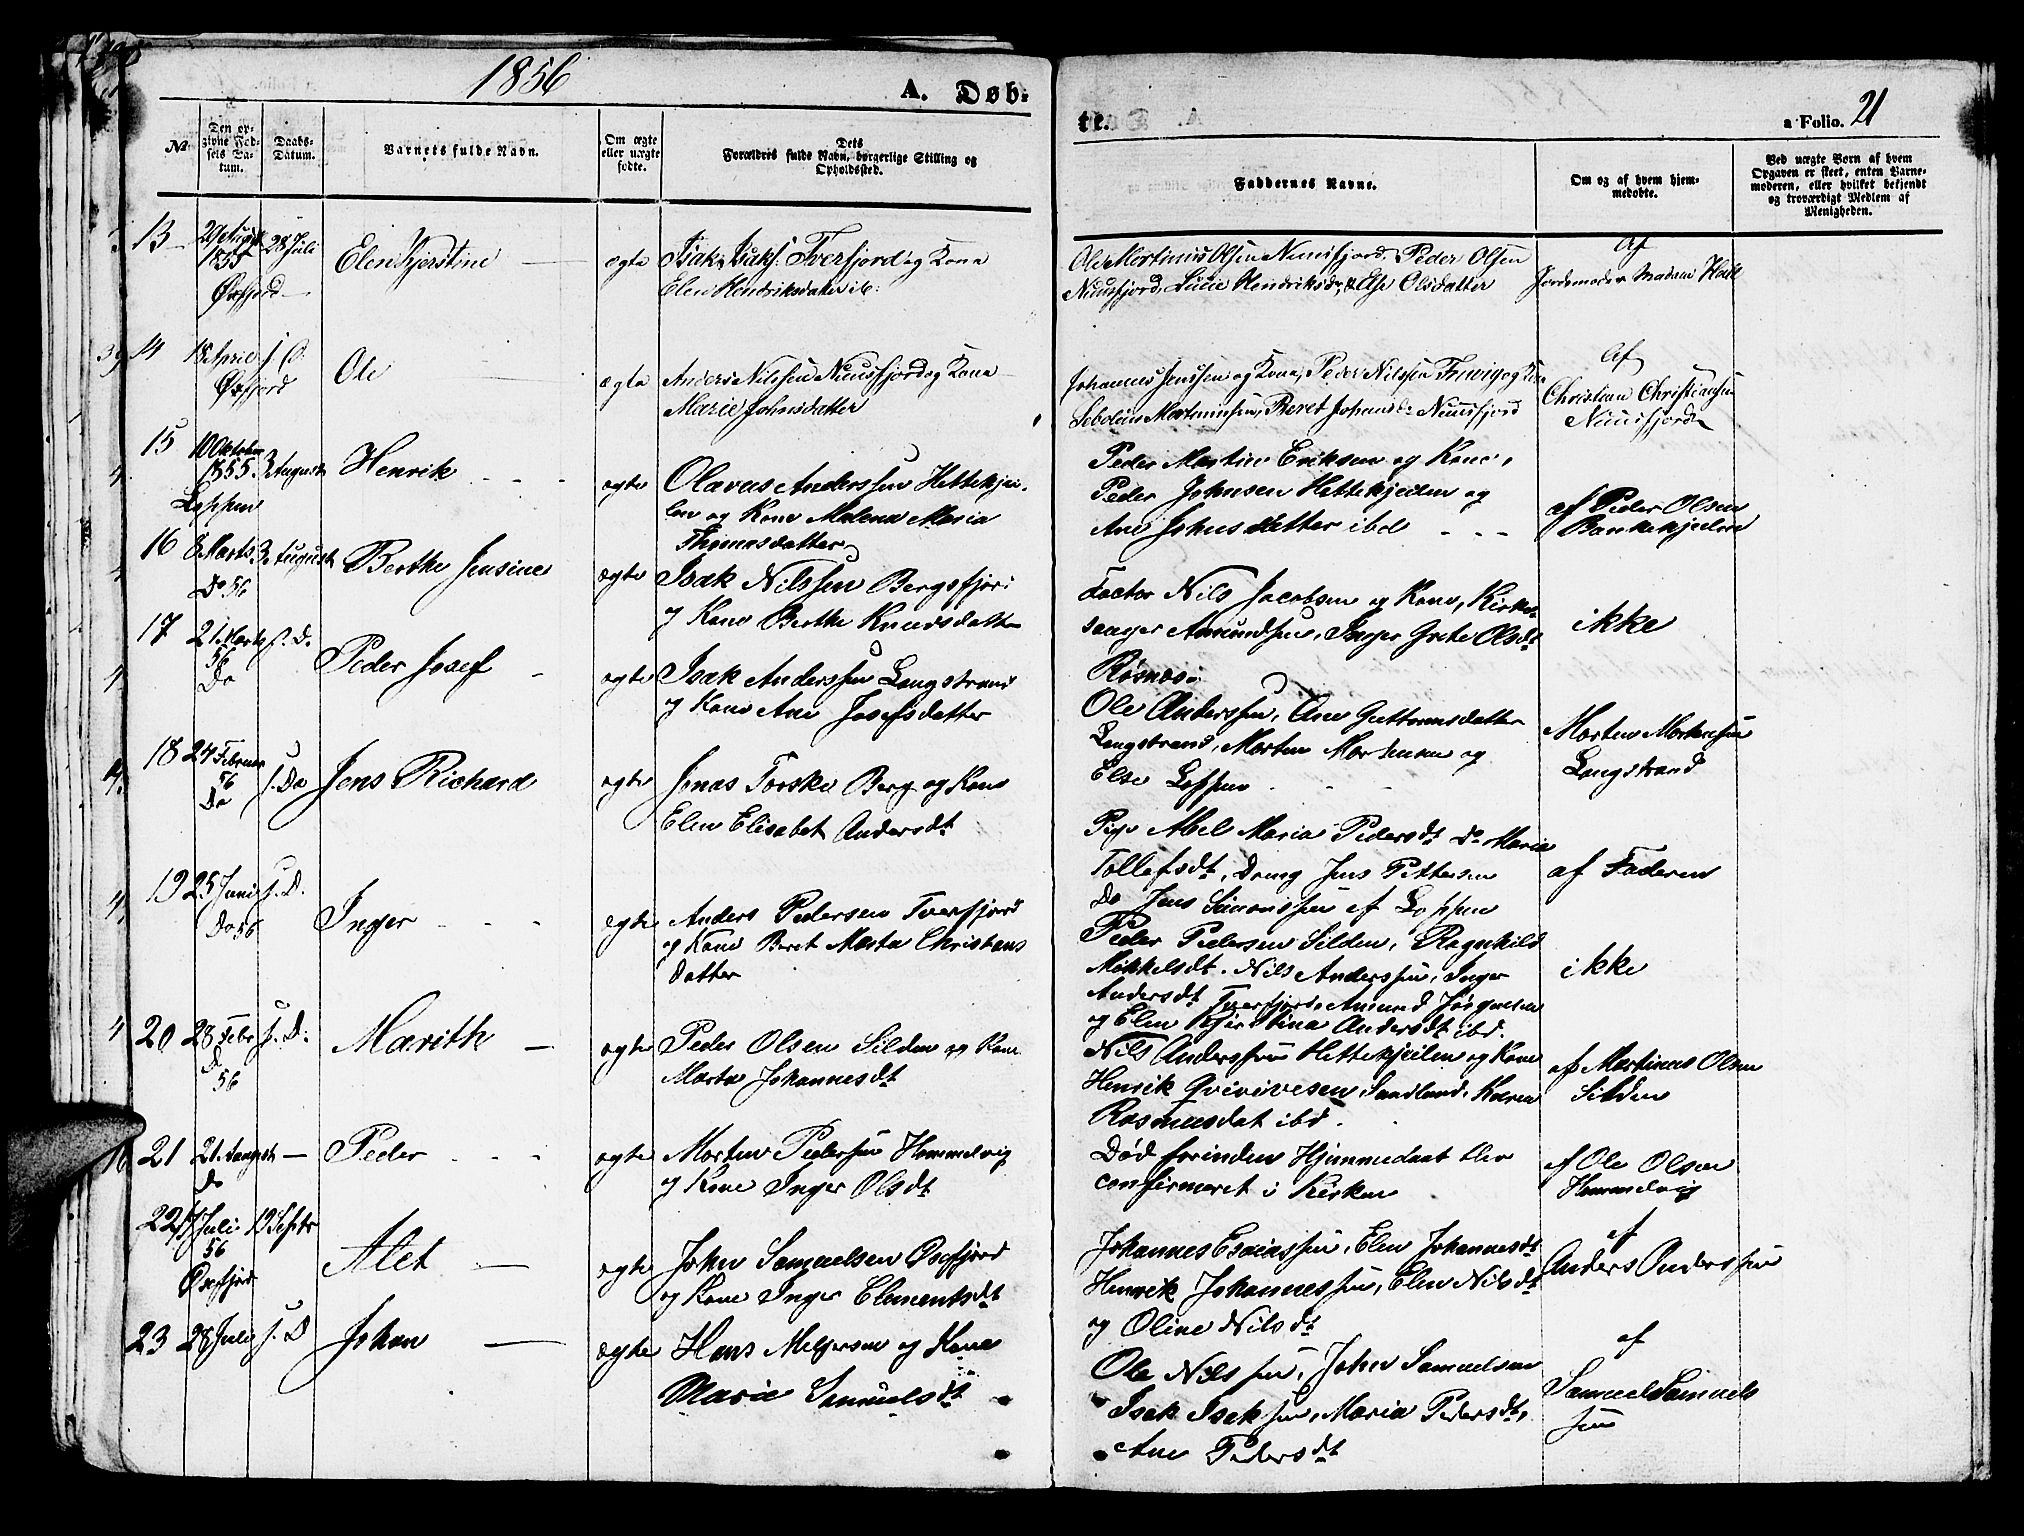 1856
A. Døb-
te.
a Folio. 21
No
Den op-
givne Fød-
sels Da-
tum.
Daabs-
Datum.
Barnets fulde Navn.
Om ægte
eller uægte
fødte.
Dets
Forældres fulde Navn, borgerlige Stilling og
Opholdssted.
Faddernes Navne.
Om og af hvem hjem-
medøbte.
Ved uægte Børn af hvem
Opgaven er skeet, enten Barne-
moderen, eller hvilket bekjendt
og troværdigt Medlem af
Menigheden.
13
1855
Øxfjord
28 Juli
Elen Kjerstine
ægte
Isak Isaks: Tverfjord og Kone
Elen Hendriksdater ib:
Ole Mortinus Olsen Nuusfjord, Peder Olsen
Nuusfjord, Lucie Hendriksdr, & Else Olsdatter
Af
Jordemoder Madam Hall
14
18 April
Øxfjord
s. D.
Ole
ægte
Anders Nilssen Nuusfjord og Kone
Marie Johnsdatter
Johannes Jenssen og Kone, Peder Nilssen
Mortensen, Beret Johansd: Nuusfjord
Af
Christian Christiansen
Nuusfjord
15
10 Oktober
1855
Loppen
3 August
Henrik
ægte
Olavus Anderssen Hettekjei-
len og Kone Malena Maria
Thomasdatter
Peder Martin Eriksen og Kone,
Peder Johnsen Hettekjeilen og
Ane Johnsdatter ibd
af Peder Olsen
16
8 Marts
Do 56
3 August
Berthe Jensine
ægte
Isak Nilssen Bergsfjord
og Kone Berthe Knudsdatter
Factor Nils Jacobsen og Kone, Kirke-
sanger Amundsen, Inger Grete Olsdt
Røsnæs
ikke
17
21 Marts
56
Do
s. D.
Peder Josef
ægte
Isak Anderssen Langstrand
og Kone Ane Josefsdatter
Ole Anderssen, Ane Guttormsdatter
Langstrand, Morten Mortensen og
Else Loppen
Morten Mortensen
Langstrand
18
24 Februar
56
Do
s. Do
Jens Richard
ægte
Jonas Torske Berg og Kone
Elen Elisabet Andersdt
Pige Abel Maria Pedersdt Do Maria
Tollefsdt, Dreng Jens Pettersen
Do Jens Simonssen af Loppen
af Faderen
19
25 Juni
Do 56
s. D.
Inger
ægte
Anders Pedersen Tverfjord
og Kone Beret Marta Christens
datter
Peder Pedersen Silden, Ragnhild
Mikkelsdt. Nils Anderssen, Inger
Andersdt Tverfjord Amund Jørgensen
og Elen Kjerstina Andersdt ibd.
ikke
20
28 Febr
D
56
s. D.
Marith
ægte
Peder Olsen Silden og Kone
Marta Johannesdt
Nils Anderssen Hettekjeilen og Kone
Henrik Sandland, Karen
Rasmusdat ibd.
af Martinus Olsen
Silden
21
21 August
Do
Peder
ægte
Morten Pederssen Hommelvig
og Kone Inger Olsdt
Død forinden Hjemmedaab blev
confirmeret i Kirken
af Ole Olsen
Hommelvig
22
Juli
56
Øxfjord
19 Septr
Alet
ægte
John Samuelsen Øxfjord
og Kone Inger Clementsdt
Johannes Esaiassen, Elen Johannesdt
Henrik Johannessen, Elen Nilsdt
og Oline Nilsdt
af
Anders Anderssen
23
28 Juli
s. D
Johan
ægte
Hans Meljersen og Kone
Marie Samuelsdt
Ole Nilssen, John Samuelsen
Isak Isaksen, Maria Pedersdt,
Ane Pedersdt
af
Samuel Samuels
sen